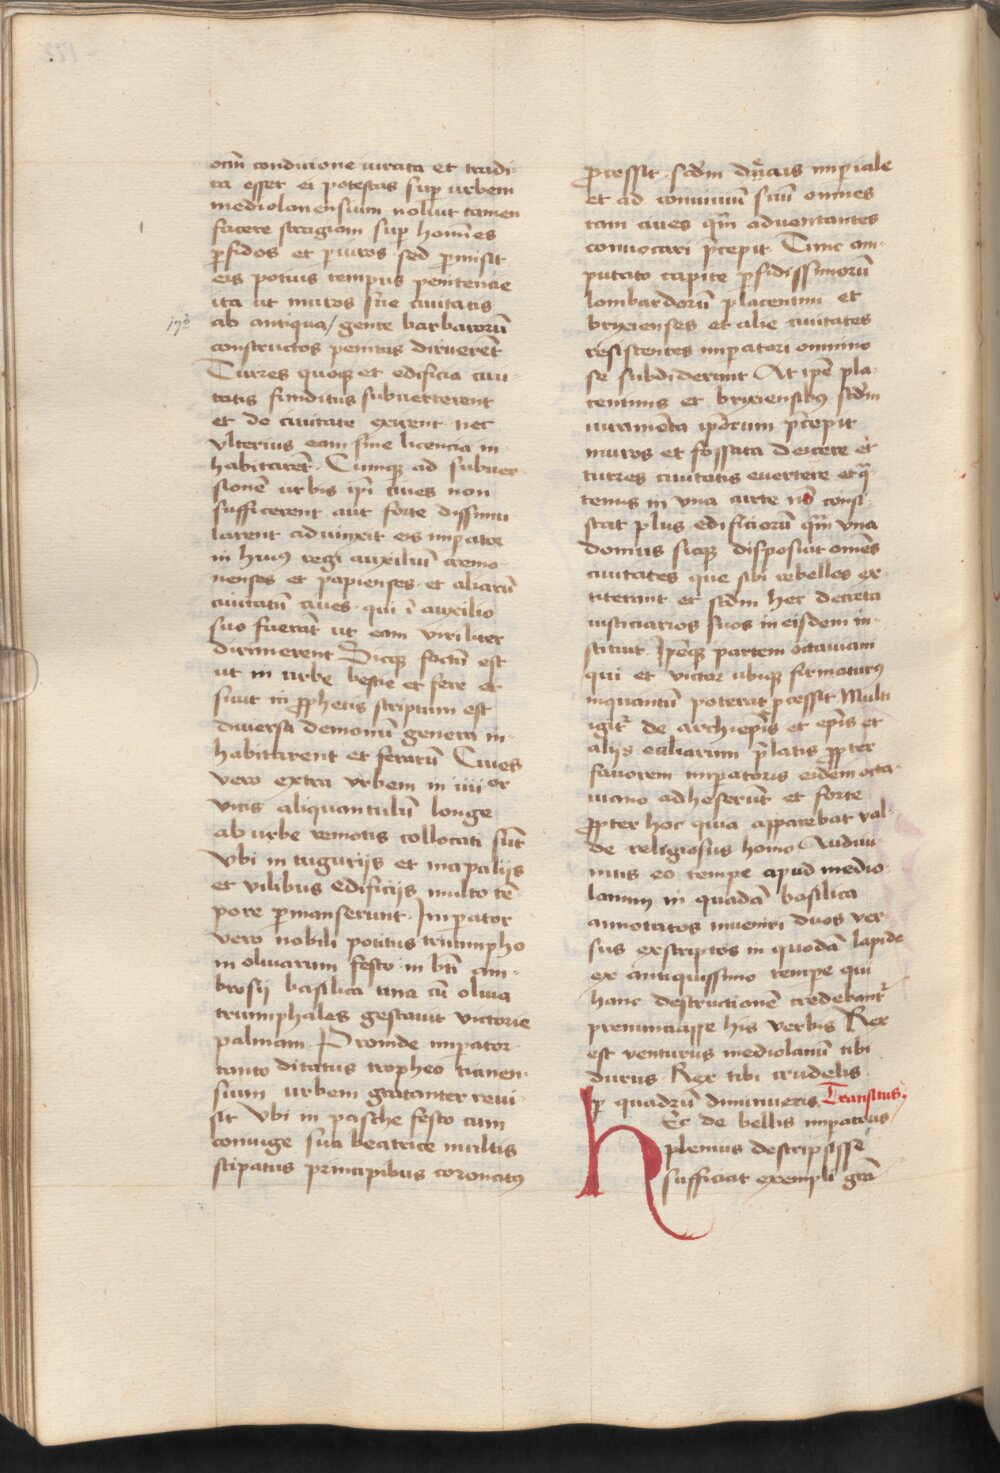 om̄ condicione iurata et tradi-
ta esset ei potestas sup̲ urbem
mediolanensium noluit tamen
facere stragiam sup̲ homīes
ꝑfidos et ꝑiuros sed ꝑmisit
eis potius tempus penitencie
ita ut muros sue ciuitatis
ab antiqua / gente barbarorū
constructos penitus diruerēt
Turres quoqꝫ et edificia ciui-
tatis funditus subuerterent
et de ciuitate exirent nec
vlterius eam sine licencia in-
habitarēt. Cumqꝫ ad subuer-
sionē urbis ipī ciues non
sufficerent aut forte dissimu
larent adiunxit eis impator
in huiꝰ regi auxiliū cremo-
nenses et papienses et aliarū
ciuitatū ciues qui ī auxilio
suo fuerāt ut eam viriliter
dirimerent Sicqꝫ factū est
ut in urbe bestie et fere et
sicut in ꝓphetis scriptum est
diuersa demonū genera in-
habitarent et ferarū Ciues
vero extra vrbem in iiiior
vicis aliquantulū longe
ab urbe remotis collocati sūt
vbi in tugurijs et mapalijs
et vilibus edificijs multo tē-
pore ꝑmanserunt. Impator
vero nobili potitus triumpho
in oliuarum festo in bti am-
brosij basilica una cū oliua
triumphales gestauit victorie
palmam. Proinde impator
tanto ditatus tropheo ticinen-
sium urbem gratanter reui-
sit vbi in pasche festo cum
coniuge sua beatrice multis
stipatus principibus coronatꝰ
ꝓcessit scdm impiale
et ad conuiuiū suū omnes
tam ciues qm̄ aduentantes
conuocari p̄cepit. Tunc am-
putato capite ꝑfidissimorū
lombardorū placentini et
brixienses et alie ciuitates
resistentes impatori omnino
se subdiderunt At ipē pla-
centinis et brixiensibꝰ scdm
iuramēta ipōrum p̄cepit
muros et fossata deicere et
turres ciuitatis euertere etqa-
tenus in vna curte nō consi-
stat plus edificiorū qm̄ vna
domus sicqꝫ disposuit omēs
ciuitates que sibi rebelles ex-
titerant et scdm hec decreta
iusticiarios suos in eisdem in-
stituit Ipēqꝫ partem octauiani
qui et victor ubiqꝫ firmaturꝰ
inquantū poterat ꝓcessit. Multi
igitr̄ de archiepīs et epīs et
alijs eccliarum p̄latis ꝓpter
fauorem impatoris eidem octa-
uiano adheserūt et forte
ꝓpter hoc quia apparebat val-
de religiosus homo Audiui-
mus eo tempe apud medio-
lanum in quadā basilica
annotatos inueniri duos ver-
sus exscriptos in quodā lapide
ex antiquissimo tempe qui
hanc destructionē credebantr̄
prenunciasse his verbis Rex
est venturus mediolanū tibi
durus Rex tibi crudelis
ꝑ quadrū diminueris. Transitus
Hec de bellis impatoris
plenius descripsisse
sufficiat exempli gra